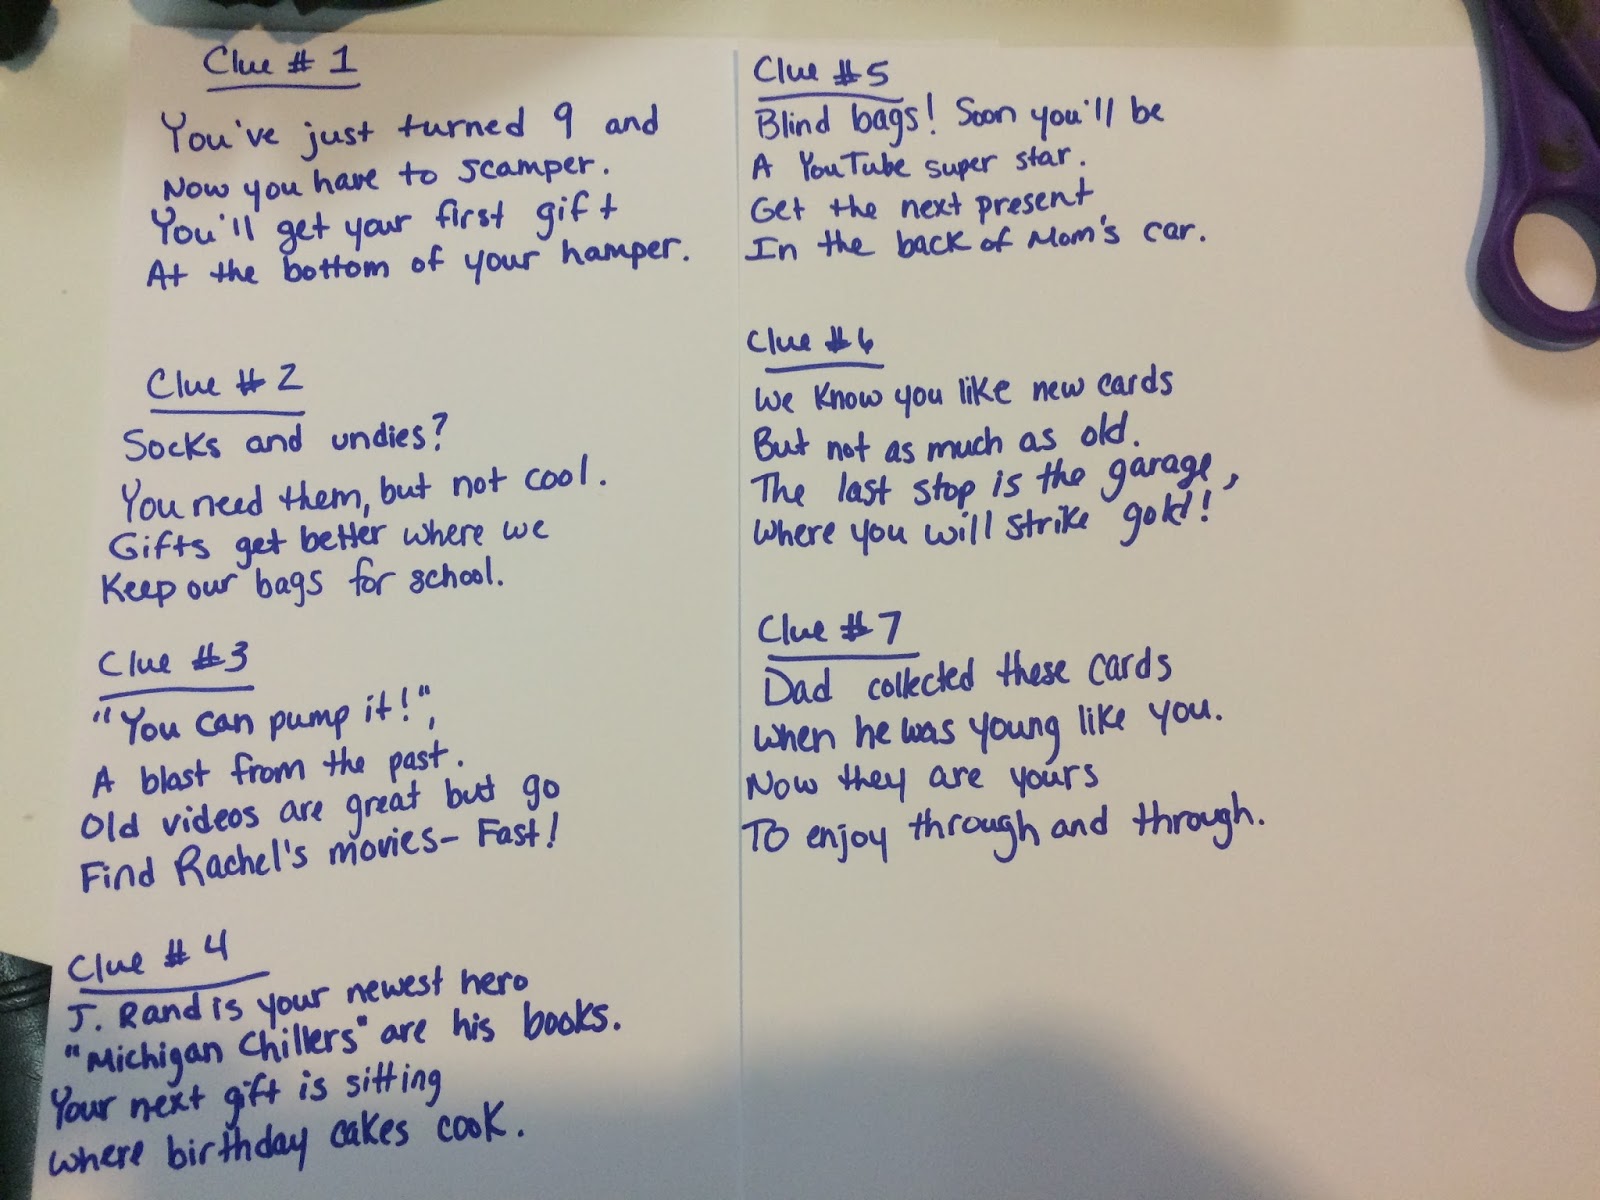 Clue # 1
You've just turned 9 and
Now you have to scamper.
You'll get your first gift
At the bottom of your hamper.
Clue # 2
Socks and undies?
You need them, but not cool.
Gifts get better where we
Keep our bags for school.
Clue #3
"You can pump it!",
A blast from the past.
Old videos are great but go
Find Rachel's movies- Fast!
Clue # 4
J. Rand is your newest hero
"Michigan Chillers" are his books.
Your next gift is sitting
Where birthday cakes cook.
Clue #5
Blind bags! Soon you'll be
A YouTube super star.
Get the next present
In the back of Mom's car.
Clue #6
We know you like new cards
But not as much as old.
The last stop is the garage,
Where you will strike gold!
Clue #7
Dad collected these cards
When he was young like you.
Now they are yours
To enjoy through and through.